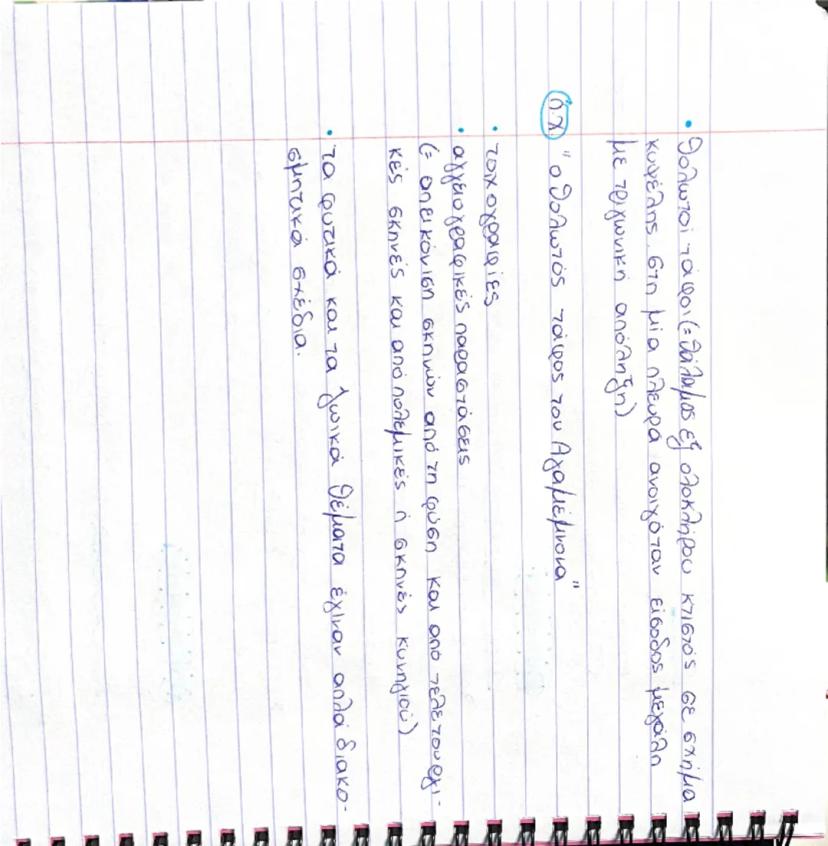 • θολωτοί τάφοι (= θάλαμος εξ ολοκλήρου κτιστός σε σχήμα
κυψέλης. στη μία πλευρά ανοιγόταν είσοδος μεγάλη
με τριγωνική απόληξη)
π.χ "ο θολωτός τάφος του Αγαμέμνονα"
• τοιχογραφίες
• αγγειογραφικές παραστάσεις
(= απεικόνιση σκηνών από τη φύση και από τελετουργι-
κές σκηνές και από πολεμικές ή σκηνές κυνηγιού)
• τα φυτικά και τα ζωικά θέματα έγιναν απλά διακο-
σμητικά σχέδια.